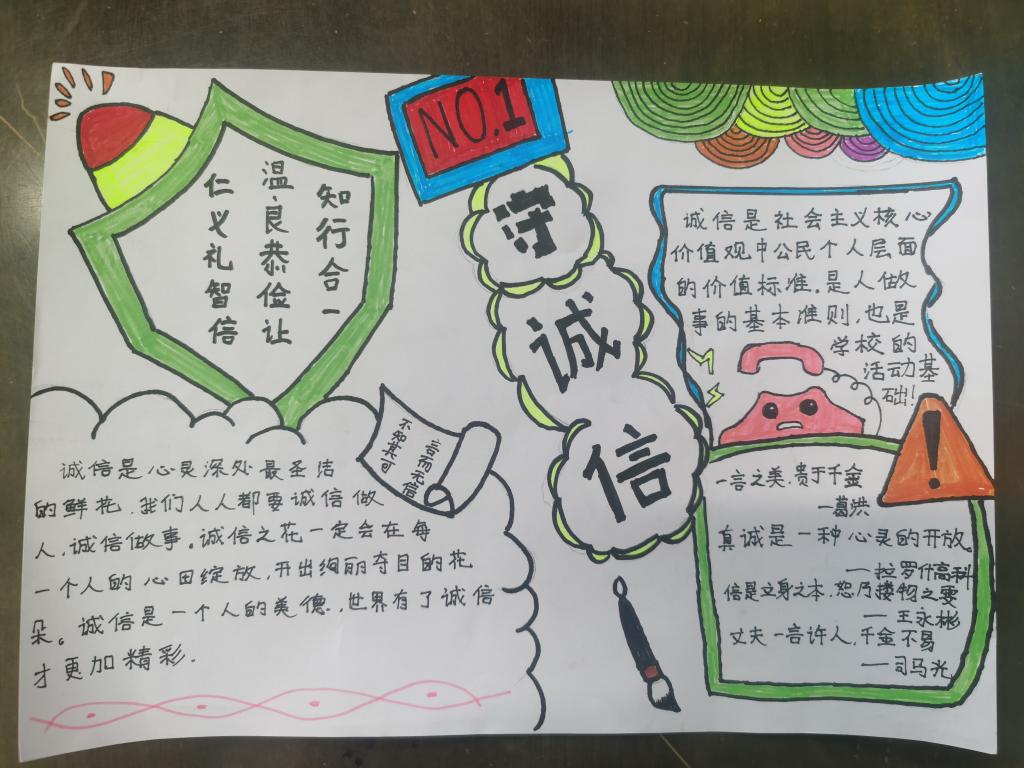 NO.1
守
诚
信
知行合一
温良恭俭让
仁义礼智信
言而无信
不知其可
诚信是心灵深处最圣洁
的鲜花.我们人人都要诚信做
人,诚信做事。诚信之花一定会在每
一个人的心田绽放,开出绚丽夺目的花
朵。诚信是一个人的美德.世界有了诚信
才更加精彩.
诚信是社会主义核心
价值观中公民个人层面
的价值标准.是人做
事的基本准则,也是
学校的
活动基
础!
一言之美,贵于千金
—葛洪
真诚是一种心灵的开放。
—拉罗什高科
信是立身之本.恕乃接物之要
—王永彬
丈夫一言许人,千金不易
—司马光